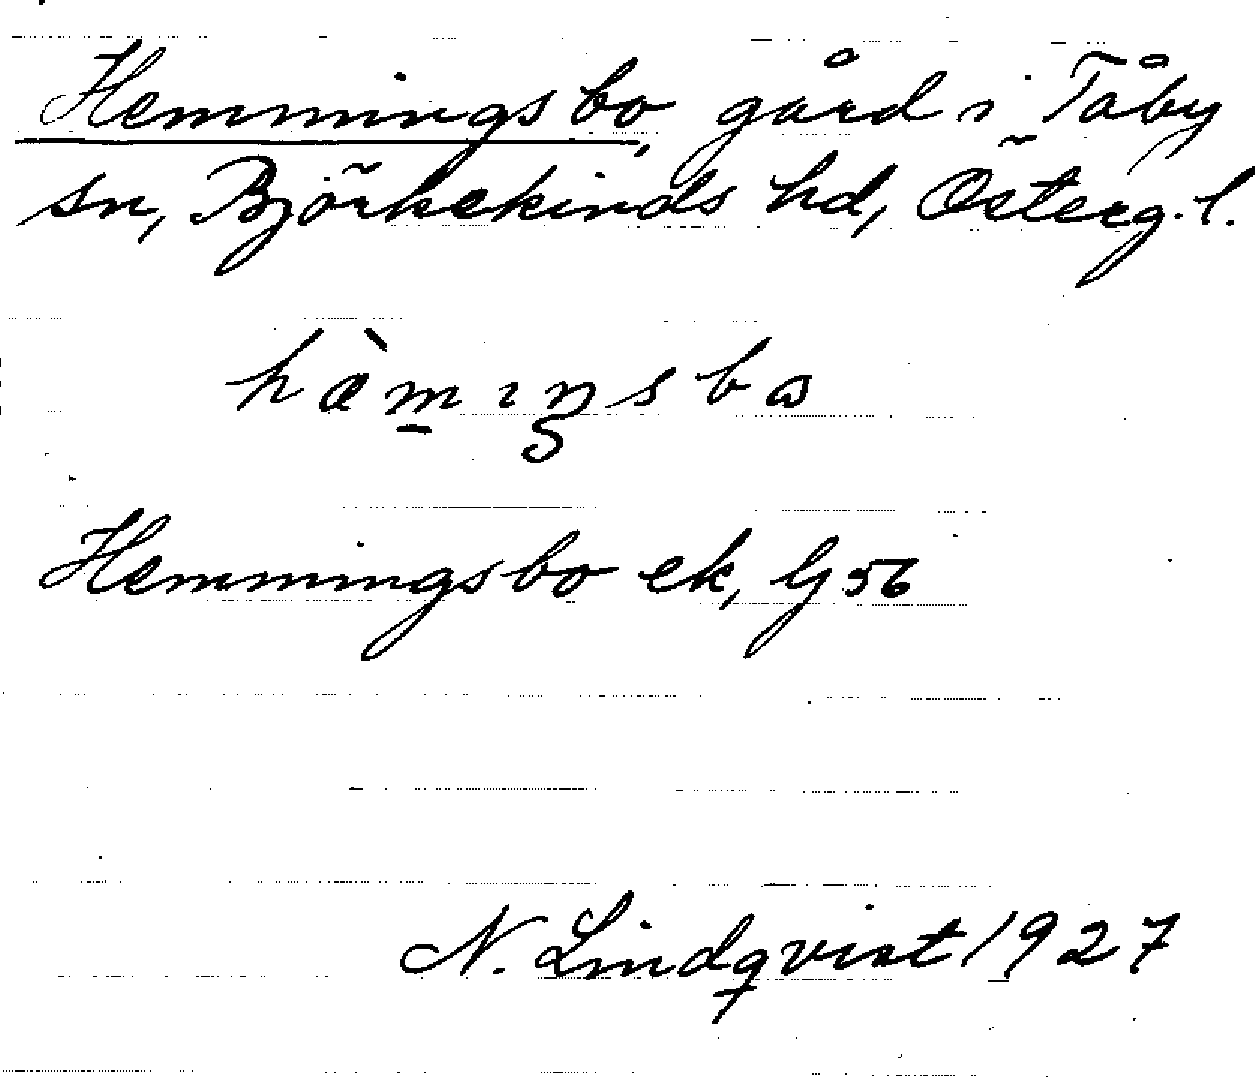 Hemmingsbo, gård i Tåby
sn, Björkekinds hd, Österg. l.
hæ̀m̲ıŋsbɷ
Hemmingsbo ek, Gj 56
N. Lindqvist 1927